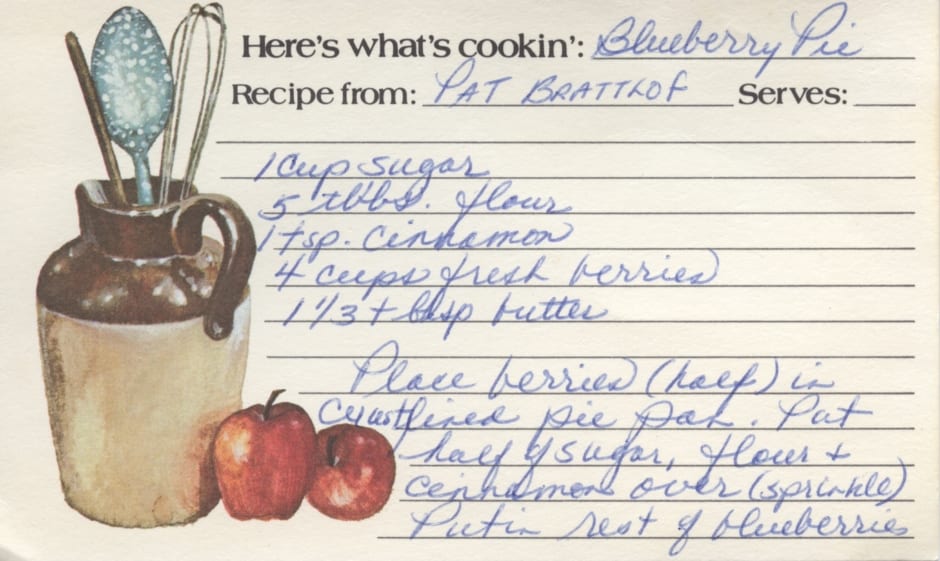 Here's what's cookin': Blueberry Pie
Recipe from: PAT BRATTLOF Serves:
1 cup sugar
5 tbbs. flour
1 tsp. cinnamon
4 cups fresh berries
1 1/3 tblsp butter
Place berries (half) in
crust lined pie pan. Put
half of sugar, flour +
cinnamon over (sprinkle)
Put in rest of blueberries